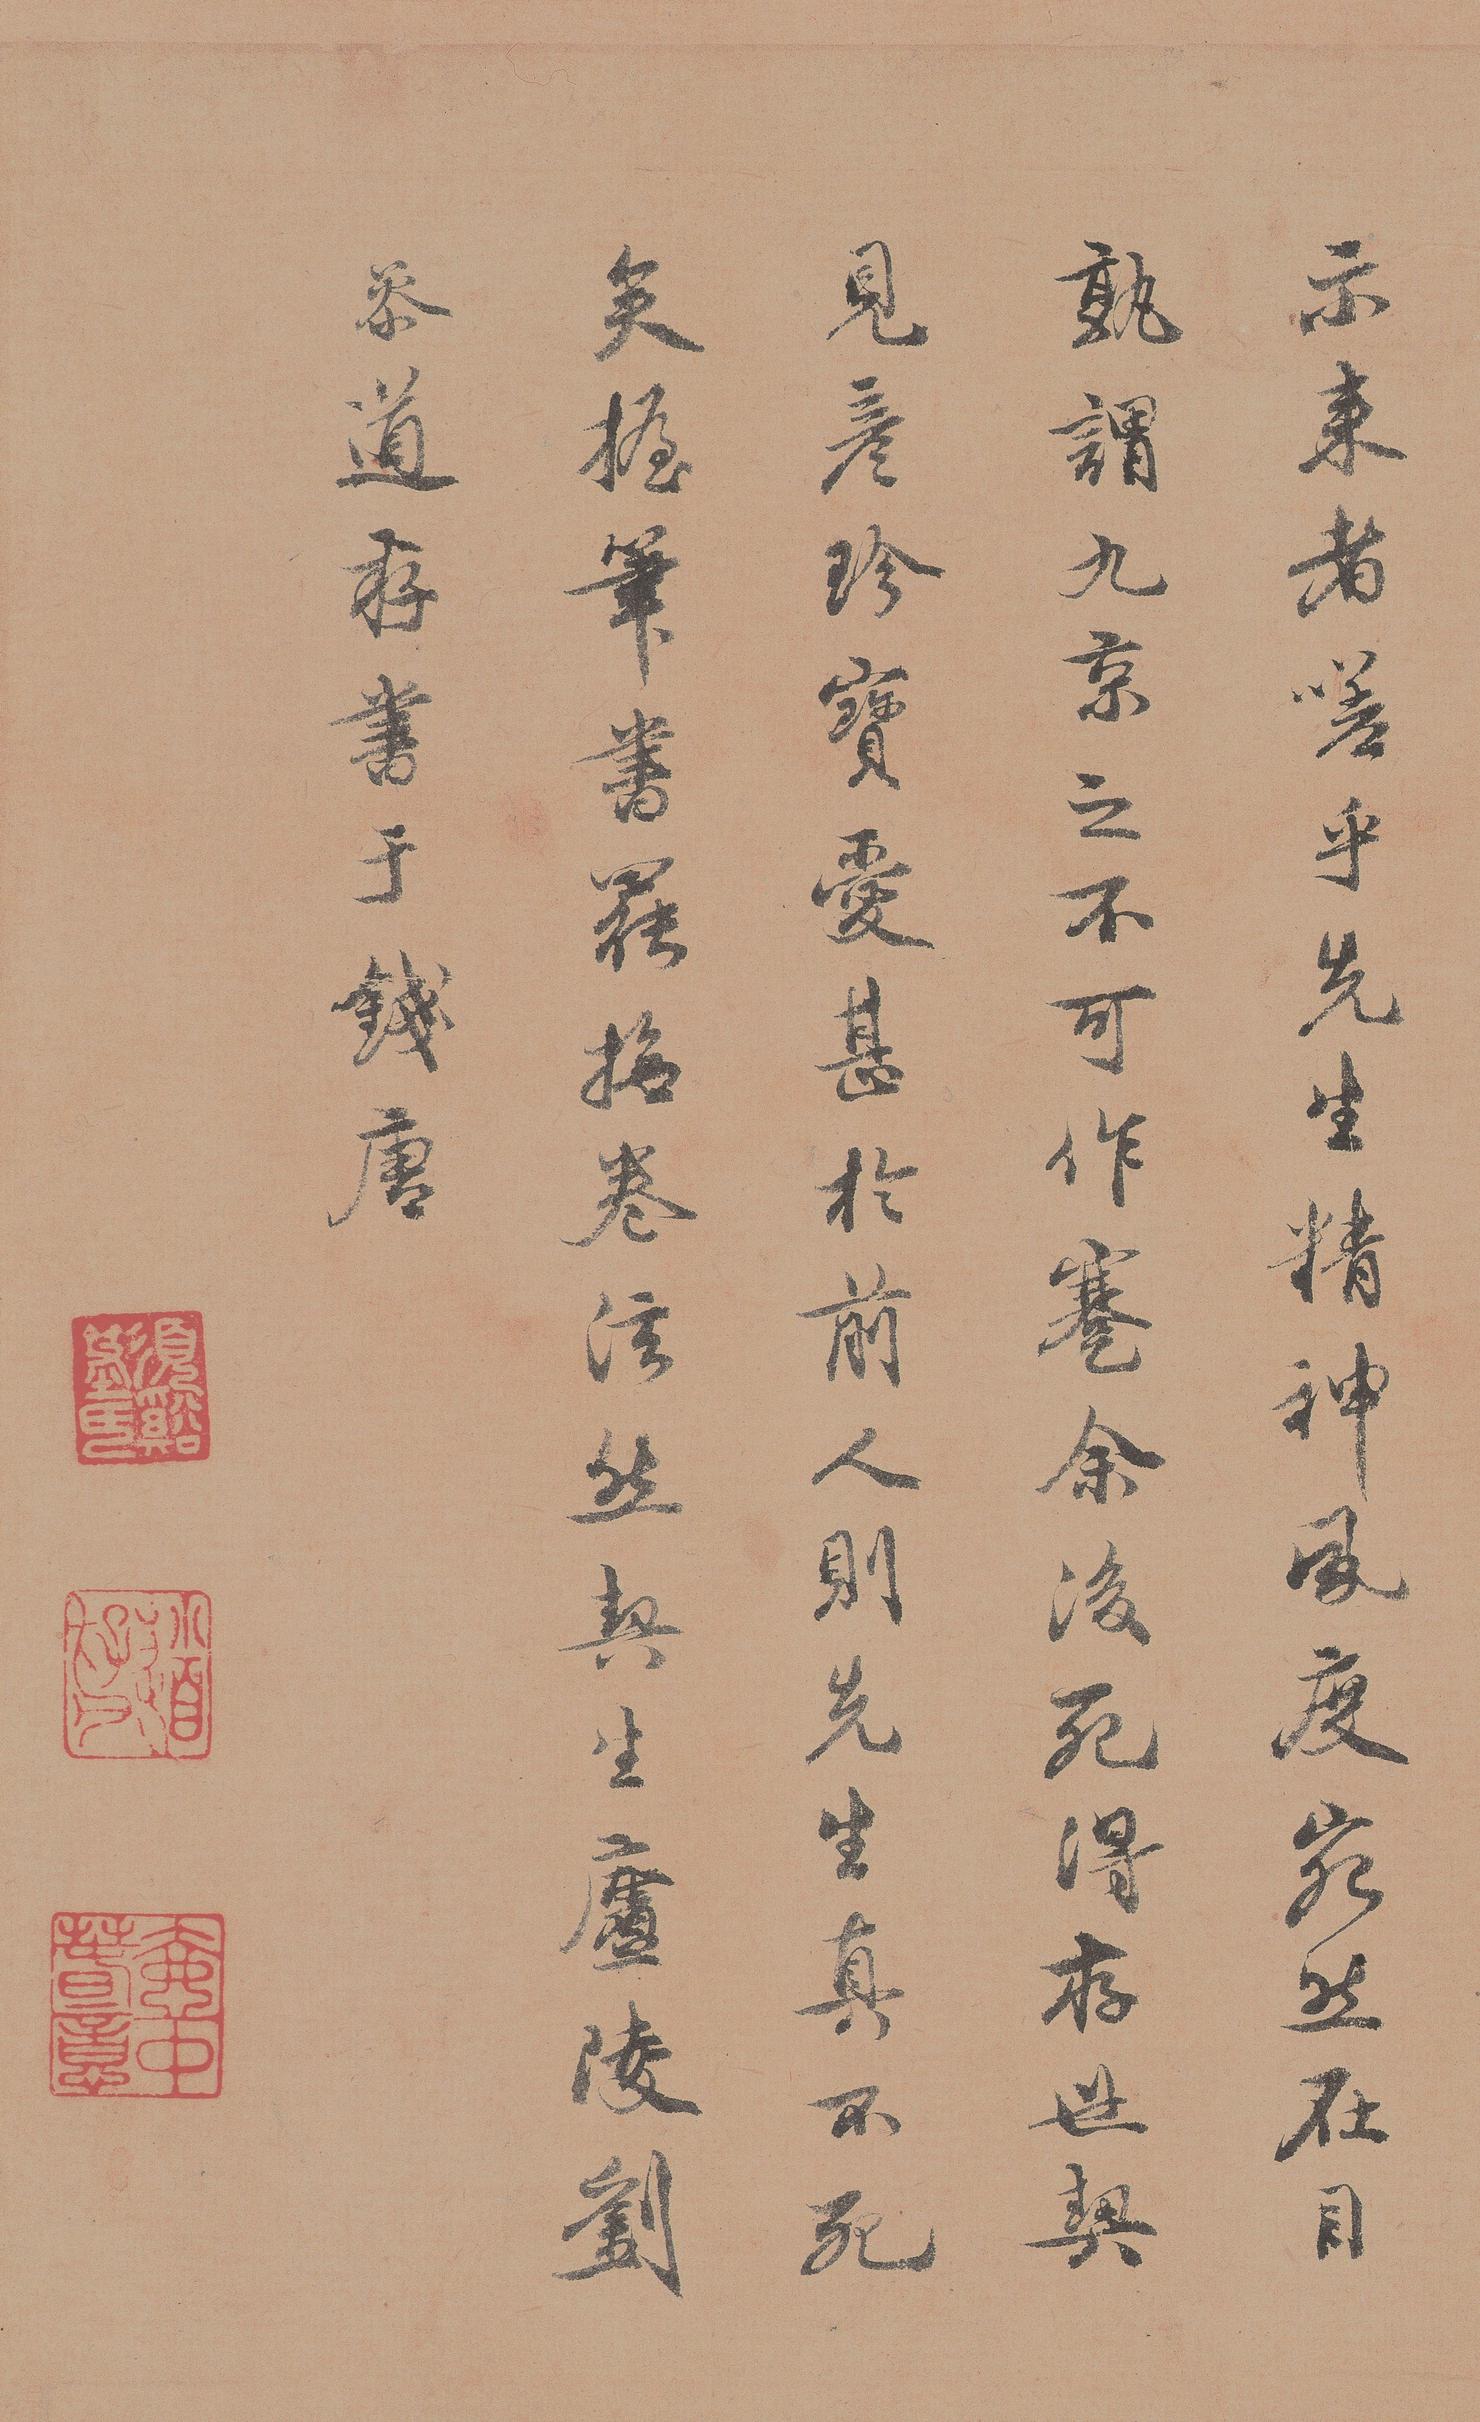 示来者嗟乎先生精神風度宛然在目
孰謂九京之不可作蹇余後死得存世契
見彥珍寶愛甚於前人則先生真不死
矣援筆書羅掩卷泫然契生廬陵劉
岳道存書于錢唐
須谿